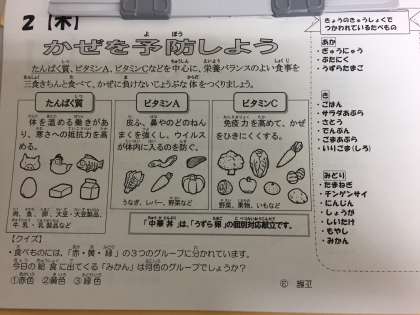 2【木】
かぜを予防しよう
たんぱく質、ビタミンA、ビタミンCなどを中心に、栄養バランスのよい食事を
三食きちんと食べて、かぜに負けないじょうぶな体をつくりましょう。
たんぱく質
体を温める働きがあ
り、寒さへの抵抗力を高
める。
肉、魚、卵、大豆・大豆製品、
牛乳・乳製品など
ビタミンA
皮ふ、鼻やのどのねん
まくを強くし、ウイルス
が体内に入るのを防ぐ。
うなぎ、レバー、野菜など
ビタミンC
免疫力を高めて、かぜ
をひきにくくする。
野菜、果物、いもなど
「中華丼」は、「うずら卵」の個別対応献立です。
【クイズ】
・食べものには、「赤・黄・緑」の3つのグループに分かれています。
今日の給食に出てくる「みかん」は何色のグループでしょうか？
①赤色 ②黄色 ③緑色
きょうのきゅうしょくで
つかわれているたべもの
あか
・ぎゅうにゅう
・ぶたにく
・うずらたまご
き
・ごはん
・サラダあぶら
・さとう
・でんぷん
・ごまあぶら
・いりごま(しろ)
みどり
・たまねぎ
・チンゲンサイ
・にんじん
・しょうが
・しいたけ
・もやし
・みかん